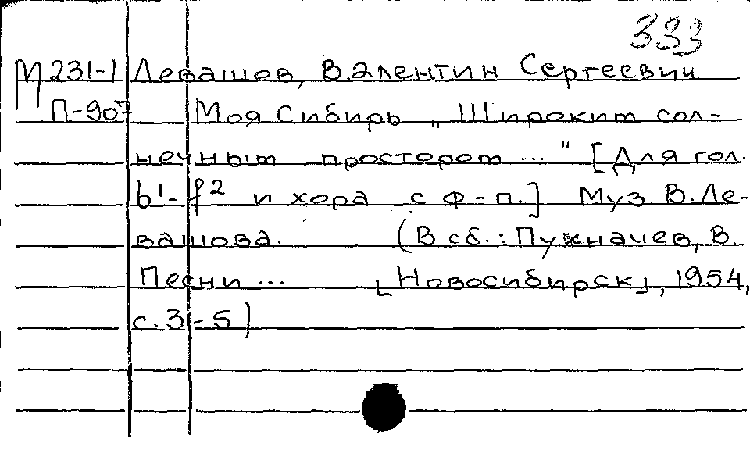 333
М231-1 Левашов, Валентин Сергеевич
П-907 Моя Сибирь „Широким сол-
нечным простором..." [Для гол.
b¹-f² и хора с ф-п.] Муз В.Ле-
вашова. (В сб.: Пухначев, В.
Песни... [Новосибирск], 1954,
с.3-5)